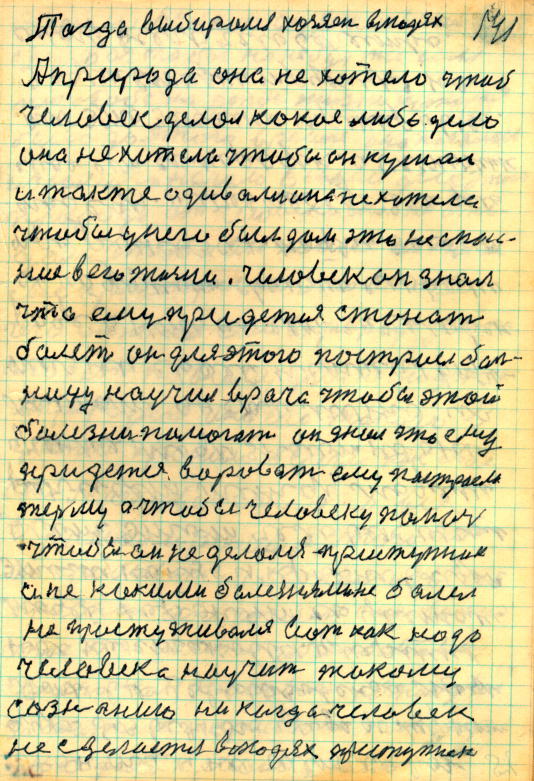 Тогда выбиромя хозяен влюдях
Априрода она не хотело чтоб
человек делол кокое либо дело
она не хотела чтобы он кушал
и так те одивали она не хотела
чтобы у него был дом это не спас-
ние в его жизни. человек он знал
что ему придетия стонат
болет он для этого построел бол-
ницу научил врача чтобы этой
болезни помогат он знал что ему
придетия вороват ему построел
терму а чтобы человеку помоч
чтобы он не делолия приступник
а не какими болезнями не болел
не простуживаля вот как надо
человека научит такому
сознанию никогда человек
не сделается влюдях приступник